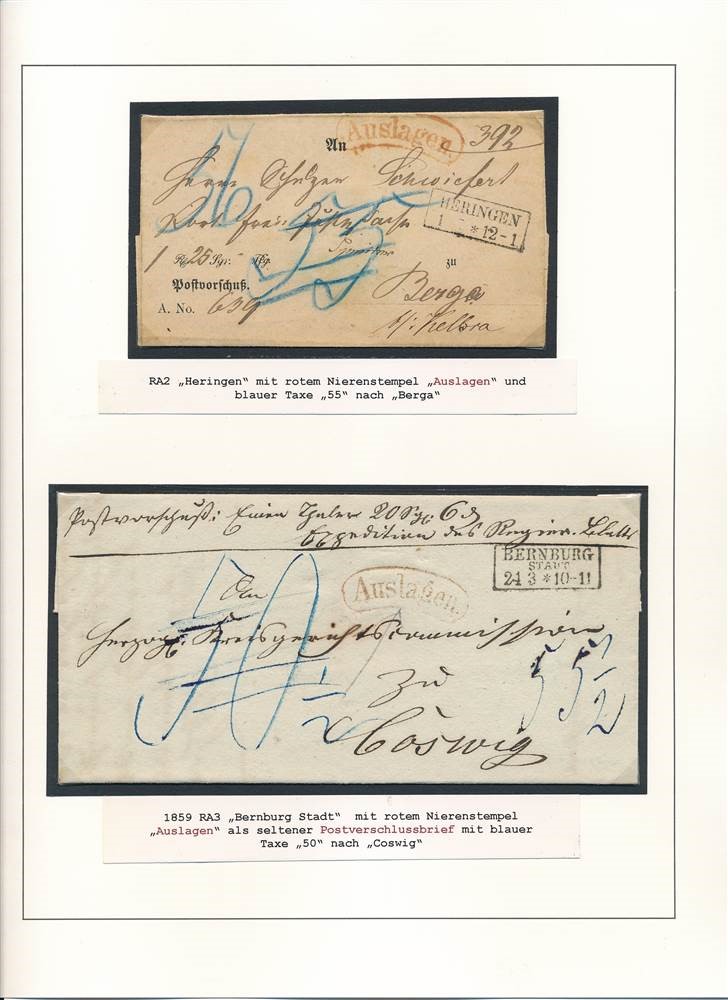 Auslagen.
392
An
Herrn Schulzen Schwiefert
HERINGEN
1 * 12-1
1 Rg. 25 Sgr. Pfg.
55
zu
Postvorschuß.
Berga
A. No. 639
b/ Kelbra
RA2 „Heringen“ mit rotem Nierenstempel „Auslagen“ und
blauer Taxe „55“ nach „Berga“
Postvorschuß: Einen Thaler 20 Sgr. 6 d
Expedition des Regier. Blatts
BERNBURG
STADT
24 3 * 10-11
An
Auslagen.
Herzogl. Kreisgerichtscommission
50 1/2
zu
55 1/2
Coswig
1859 RA3 „Bernburg Stadt“ mit rotem Nierenstempel
„Auslagen“ als seltener Postverschlussbrief mit blauer
Taxe „50“ nach „Coswig“